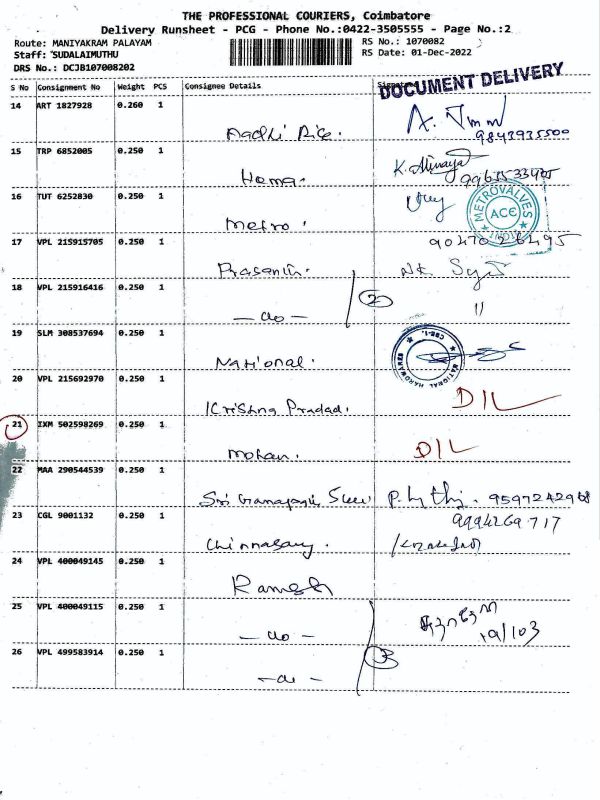 THE PROFESSIONAL COURIERS, Coimbatore
Delivery Runsheet - PCG - Phone No.:0422-3505555 - Page No.:2
Route: MANIYAKRAM PALAYAM
RS No.: 1070082
Staff: SUDALAIMUTHU
RS Date: 01-Dec-2022
DRS No.: DCJB107008202
DOCUMENT DELIVERY
S No Consignment No Weight PCS Consignee Details
14 ART 1827928 0.260 1
Aadhi Rice.
9843935500
15 TRP 6852005 0.250 1
Hema.
16 TUT 6252830 0.250 1
Metro.
METROVALVES
ACE
INDIA
17 VPL 215915705 0.250 1
9047026495
Prasanth.
18 VPL 215916416 0.250 1
2
11
- do -
19 SLM 308537694 0.250 1
National.
NATIONAL HARDWARE
CBE-1
20 VPL 215692970 0.250 1
Krishna Prasad.
D/L
21 IXM 502598269 0.250 1
Mohan.
D/L
22 MAA 290544539 0.250 1
Sri Ganapathy Steel
9597242968
23 CGL 9001132 0.250 1
9994269717
Chinnasamy.
24 VPL 400049145 0.250 1
Ramesh
25 VPL 400049115 0.250 1
- do -
19/103
26 VPL 499583914 0.250 1
3
- do -